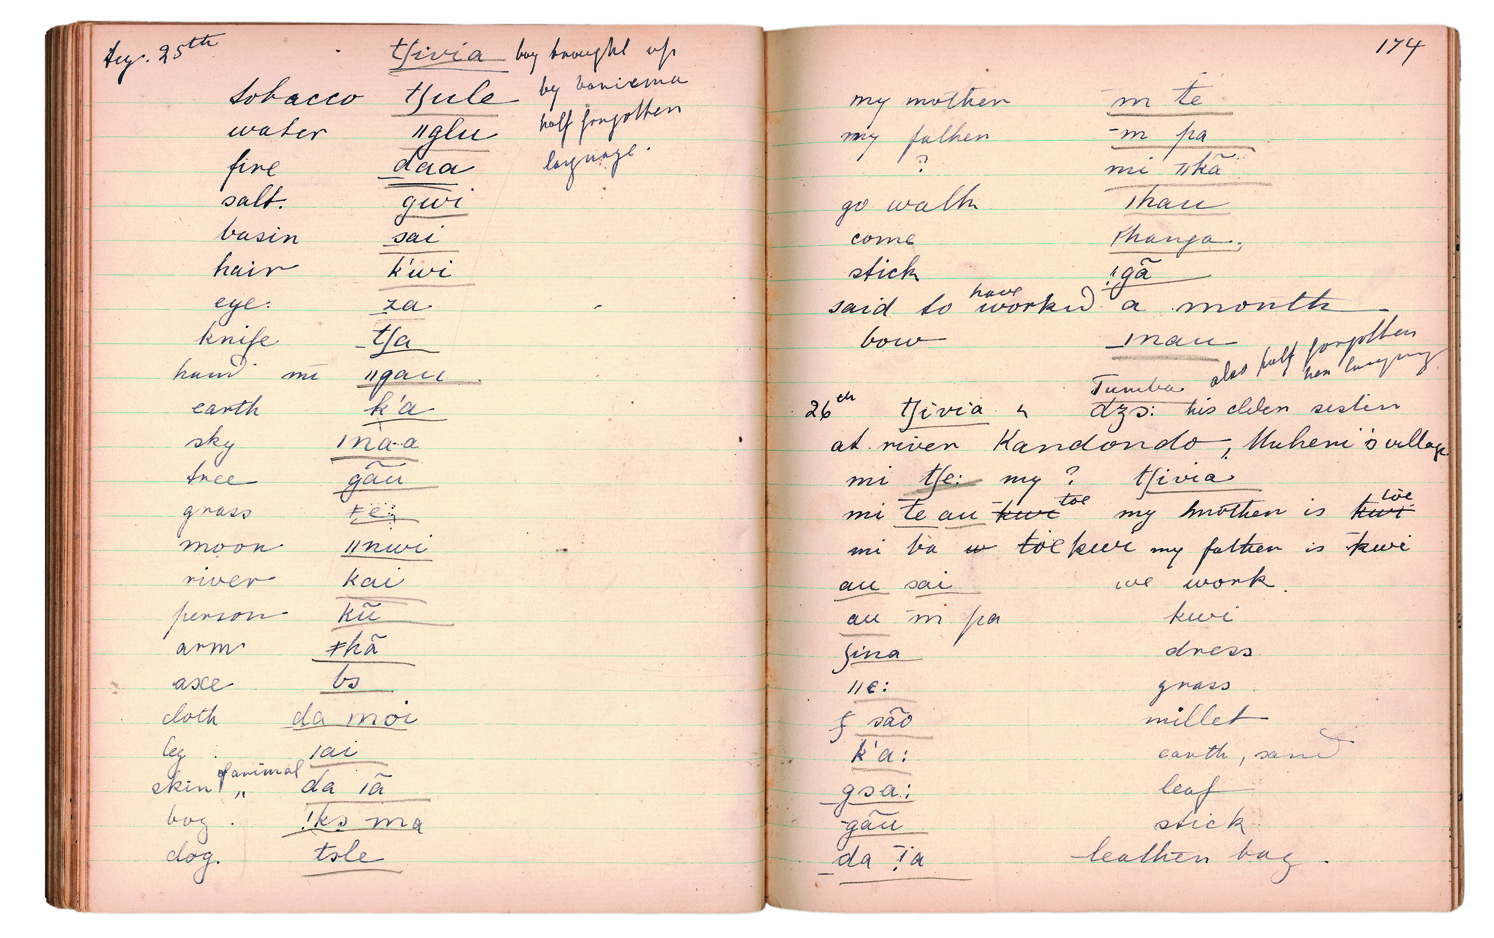 Aug. 25th tʃivia boy brought up
tobacco tʃule by
water ǁglu half forgotten
fire daa language.
salt. gwi
basin sai
hair k'wi
eye: za
knife tʃa
hand mi ǁgau
earth k'a
sky ǀna·a
tree gãu
grass ǂe:
moon ǁnwi
river kai
person kũ
arm ǂhã
axe bɔ
cloth da moi
leg ǀai
skin of animal da ǀã
bag. !kɔ ma
dog. tɔle
174
my mother m te
my father m pa
? mi ǁkã
go walk ǀhau
come ǂhanga.
stick !gã
said to have worked a month
bow ǀnau
also half forgotten
her language
Tumba
26th tʃivia & dʒɔ: his elder sister
at river Kandondo, Muheni's village
mi tʃe: my? tʃivia
mi te au kwi tɔe my mother is kwi tɔe
mi ba w tɔe kwi my father is kwi
au sai we work.
au m pa kwi
ʃina dress
ǁe: grass
ʃ são millet
k'a: earth, sand
gɔa: leaf
gãu stick
da ǀa leather bag.